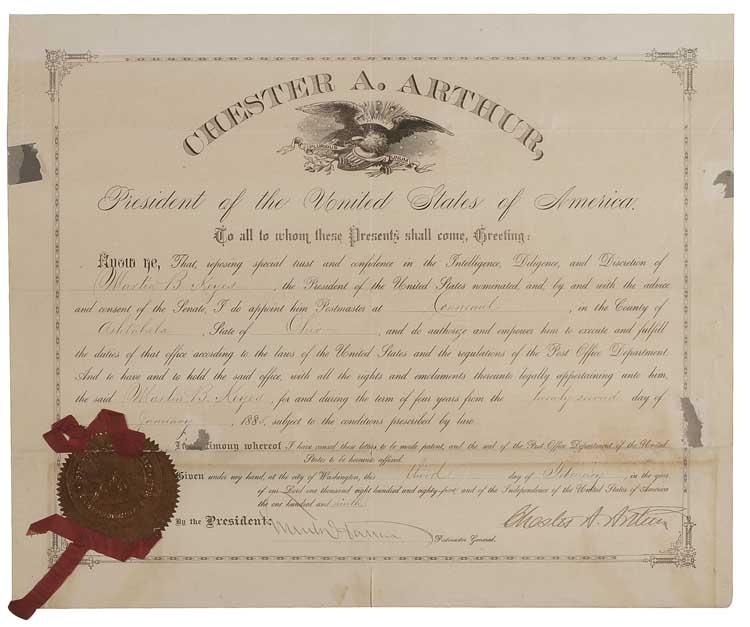 CHESTER A. ARTHUR,
President of the United States of America.
To all to whom these Presents shall come, Greeting:
Know ye, That, reposing special trust and confidence in the Intelligence, Diligence, and Discretion of
Martin B. Keyes, the President of the United States nominated, and, by and with the advice
and consent of the Senate, I do appoint him Postmaster at Conneaut, in the County of
Ashtabula, State of Ohio, and do authorize and empower him to execute and fulfill
the duties of that office according to the laws of the United States and the regulations of the Post Office Department.
And to have and to hold the said office, with all the rights and emoluments thereunto legally appertaining unto him,
the said Martin B. Keyes, for and during the term of four years from the twenty second day of
January, 1885, subject to the conditions prescribed by law.
In testimony whereof I have caused these letters to be made patent, and the seal of the Post Office Department of the United
States to be hereunto affixed.
Given under my hand, at the city of Washington, this third day of February, in the year
of our Lord one thousand eight hundred and eighty-five and of the Independence of the United States of America
the one hundred and ninth.
By the President:
Chester A. Arthur
Postmaster General.